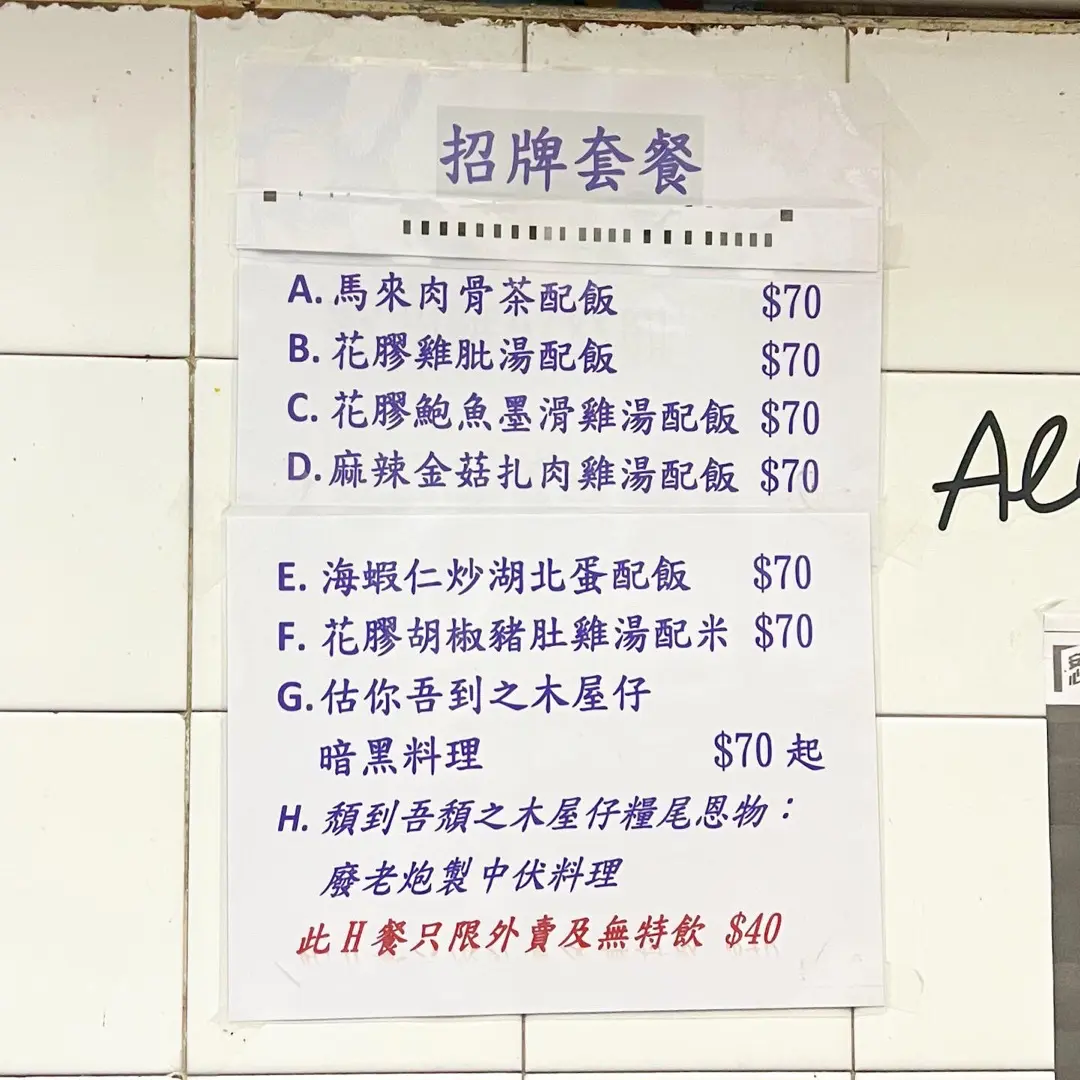 招牌套餐
A. 馬來肉骨茶配飯 $70
B. 花膠雞肶湯配飯 $70
C. 花膠鮑魚墨滑雞湯配飯 $70
D. 麻辣金菇扎肉雞湯配飯 $70
E. 海蝦仁炒湖北蛋配飯 $70
F. 花膠胡椒豬肚雞湯配米 $70
G. 估你吾到之木屋仔
暗黑料理 $70 起
H. 頹到吾頹之木屋仔糧尾恩物：
廢老炮製中伏料理
此 H 餐只限外賣及無特飲 $40